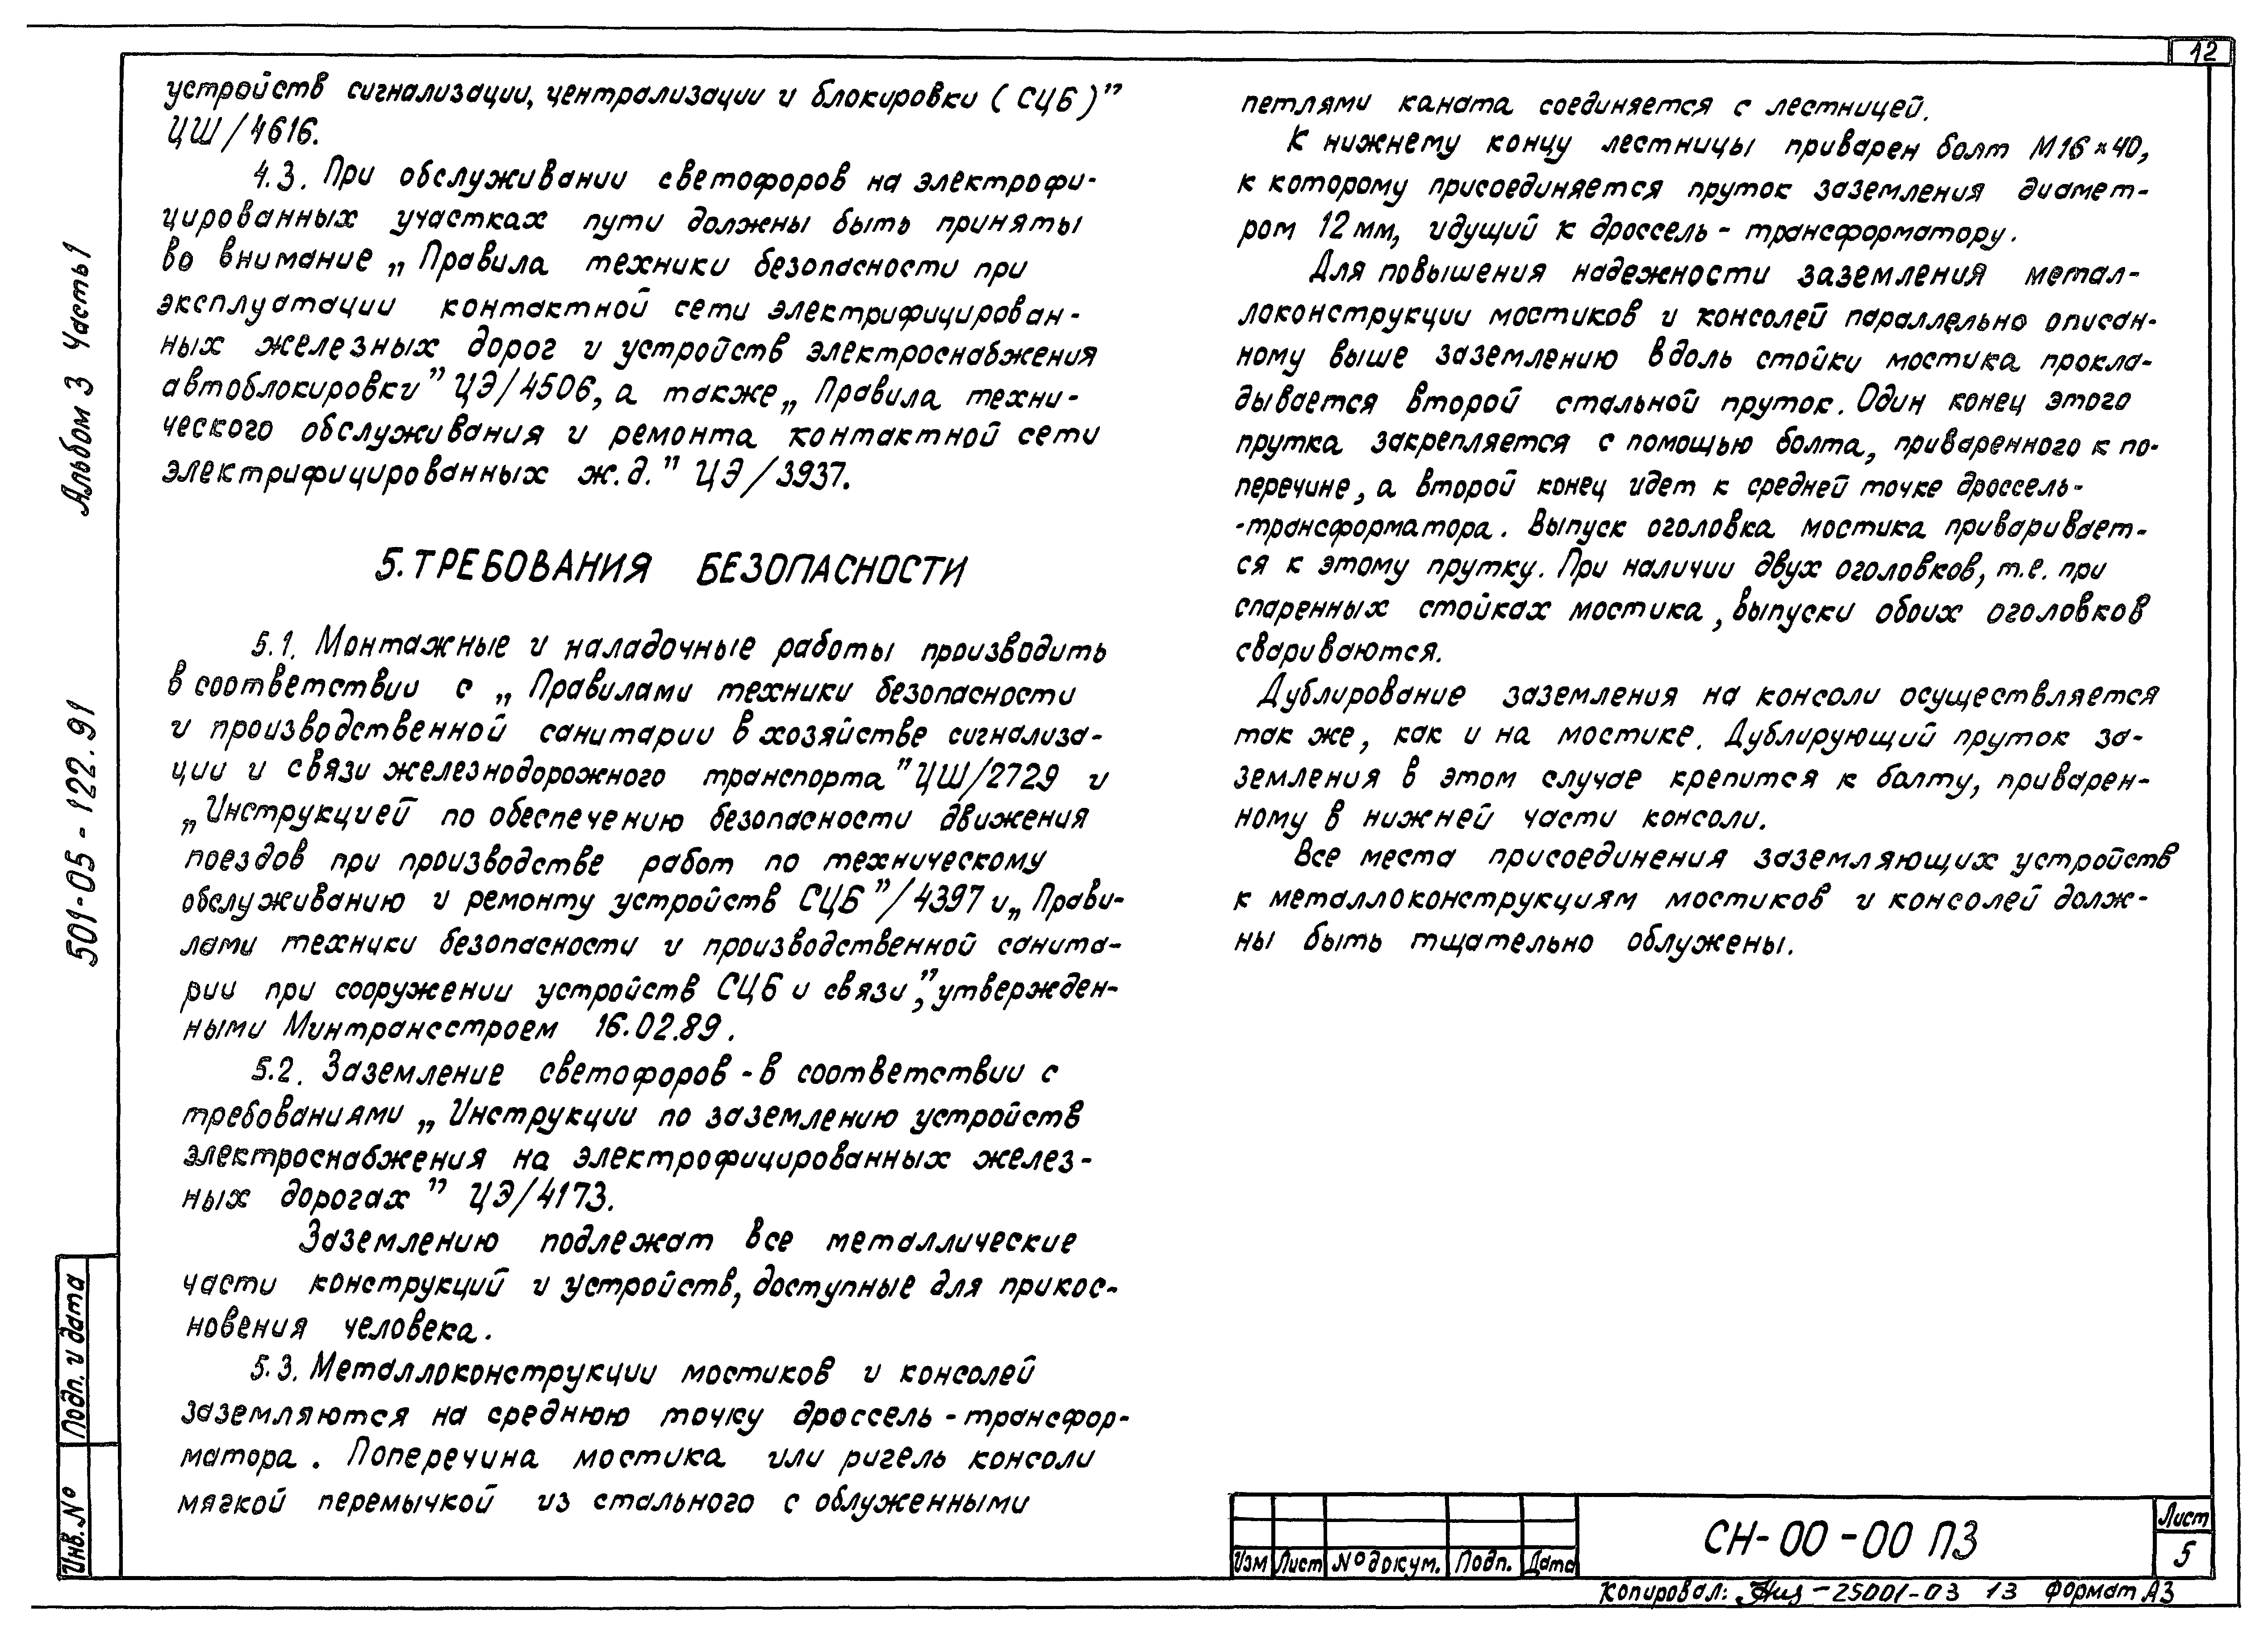 12
устройств сигнализации, централизации и блокировки (СЦБ)”
ЦШ/4616.
4.3. При обслуживании светофоров на электрофи-
цированных участках пути должны быть приняты
во внимание „Правила техники безопасности при
эксплуатации контактной сети электрифицирован-
ных железных дорог и устройств электроснабжения
автоблокировки” ЦЭ/4506, а также „Правила техни-
ческого обслуживания и ремонта контактной сети
электрифицированных ж.д.” ЦЭ/3937.
5. ТРЕБОВАНИЯ БЕЗОПАСНОСТИ
5.1. Монтажные и наладочные работы производить
в соответствии с „Правилами техники безопасности
и производственной санитарии в хозяйстве сигнализа-
ции и связи железнодорожного транспорта” ЦШ/2729 и
„Инструкцией по обеспечению безопасности движения
поездов при производстве работ по техническому
обслуживанию и ремонту устройств СЦБ”/4397 и „Прави-
лами техники безопасности и производственной санита-
рии при сооружении устройств СЦБ и связи”, утвержден-
ными Минтрансстроем 16.02.89.
5.2. Заземление светофоров - в соответствии с
требованиями „Инструкции по заземлению устройств
электроснабжения на электрофицированных желез-
ных дорогах” ЦЭ/4173.
Заземлению подлежат все металлические
части конструкций и устройств, доступные для прикос-
новения человека.
5.3. Металлоконструкции мостиков и консолей
заземляются на среднюю точку дроссель-трансфор-
матора. Поперечина мостика или ригель консоли
мягкой перемычкой из стального с облуженными
петлями каната соединяется с лестницей.
К нижнему концу лестницы приварен болт М16×40,
к которому присоединяется пруток заземления диамет-
ром 12 мм, идущий к дроссель-трансформатору.
Для повышения надежности заземления метал-
локонструкции мостиков и консолей параллельно описан-
ному выше заземлению вдоль стойки мостика прокла-
дывается второй стальной пруток. Один конец этого
прутка закрепляется с помощью болта, приваренного к по-
перечине, а второй конец идет к средней точке дроссель-
-трансформатора. Выпуск оголовка мостика приваривает-
ся к этому прутку. При наличии двух оголовков, т.е. при
спаренных стойках мостика, выпуски обоих оголовков
свариваются.
Дублирование заземления на консоли осуществляется
так же, как и на мостике. Дублирующий пруток за-
земления в этом случае крепится к болту, приварен-
ному в нижней части консоли.
Все места присоединения заземляющих устройств
к металлоконструкциям мостиков и консолей долж-
ны быть тщательно облужены.
Альбом 3 Часть 1
501-05-122.91
Подп. и дата
Инв. №
Изм Лист № докум. Подп. Дата
СН-00-00 ПЗ
Лист
5
Копировал: 25001-03 13 Формат А3